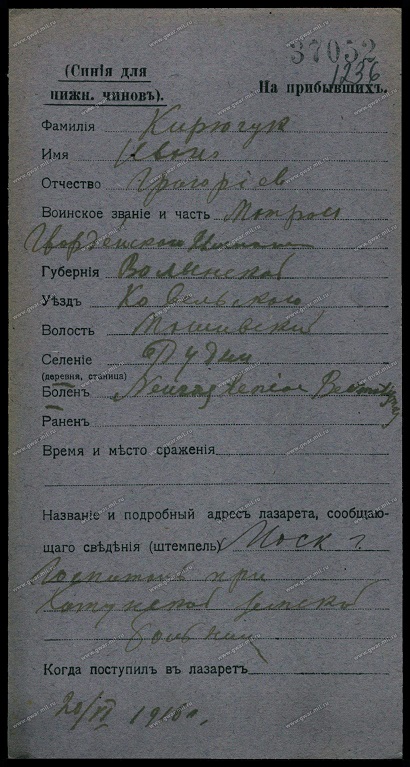 37052
1256
(Синія для
нижн. чиновъ).
На прибывшихъ.
Фамилія Кирючук
Имя Иван
Отчество Григоріев
Воинское званіе и часть Матрос
Гвардейского
Губернія Волынской
Уѣздъ Ковельского
Волость
Селеніе Рудин
(деревня, станица)
Боленъ
Раненъ
Время и мѣсто сраженія
Названіе и подробный адресъ лазарета, сообщаю-
щаго свѣдѣнія (штемпель) Моск г.
Госпиталь при
Хатунской земской
больниц
Когда поступилъ въ лазаретъ
20/VI 1916 г.